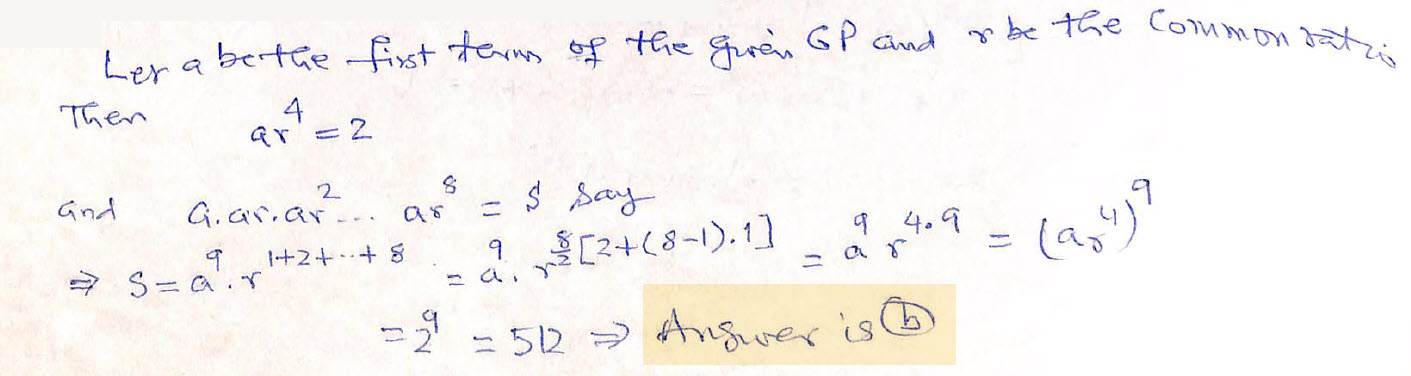 Let a be the first term of the given GP and r be the common ratio
Then
ar⁴ = 2
and a.ar.ar² ... ar⁸ = S say
⇒ S = a⁹.r^(1+2+...+8) = a⁹.r^(8/2[2+(8-1).1]) = a⁹ r^(4.9) = (ar⁴)⁹
= 2⁹ = 512 ⇒ Answer is ⓑ